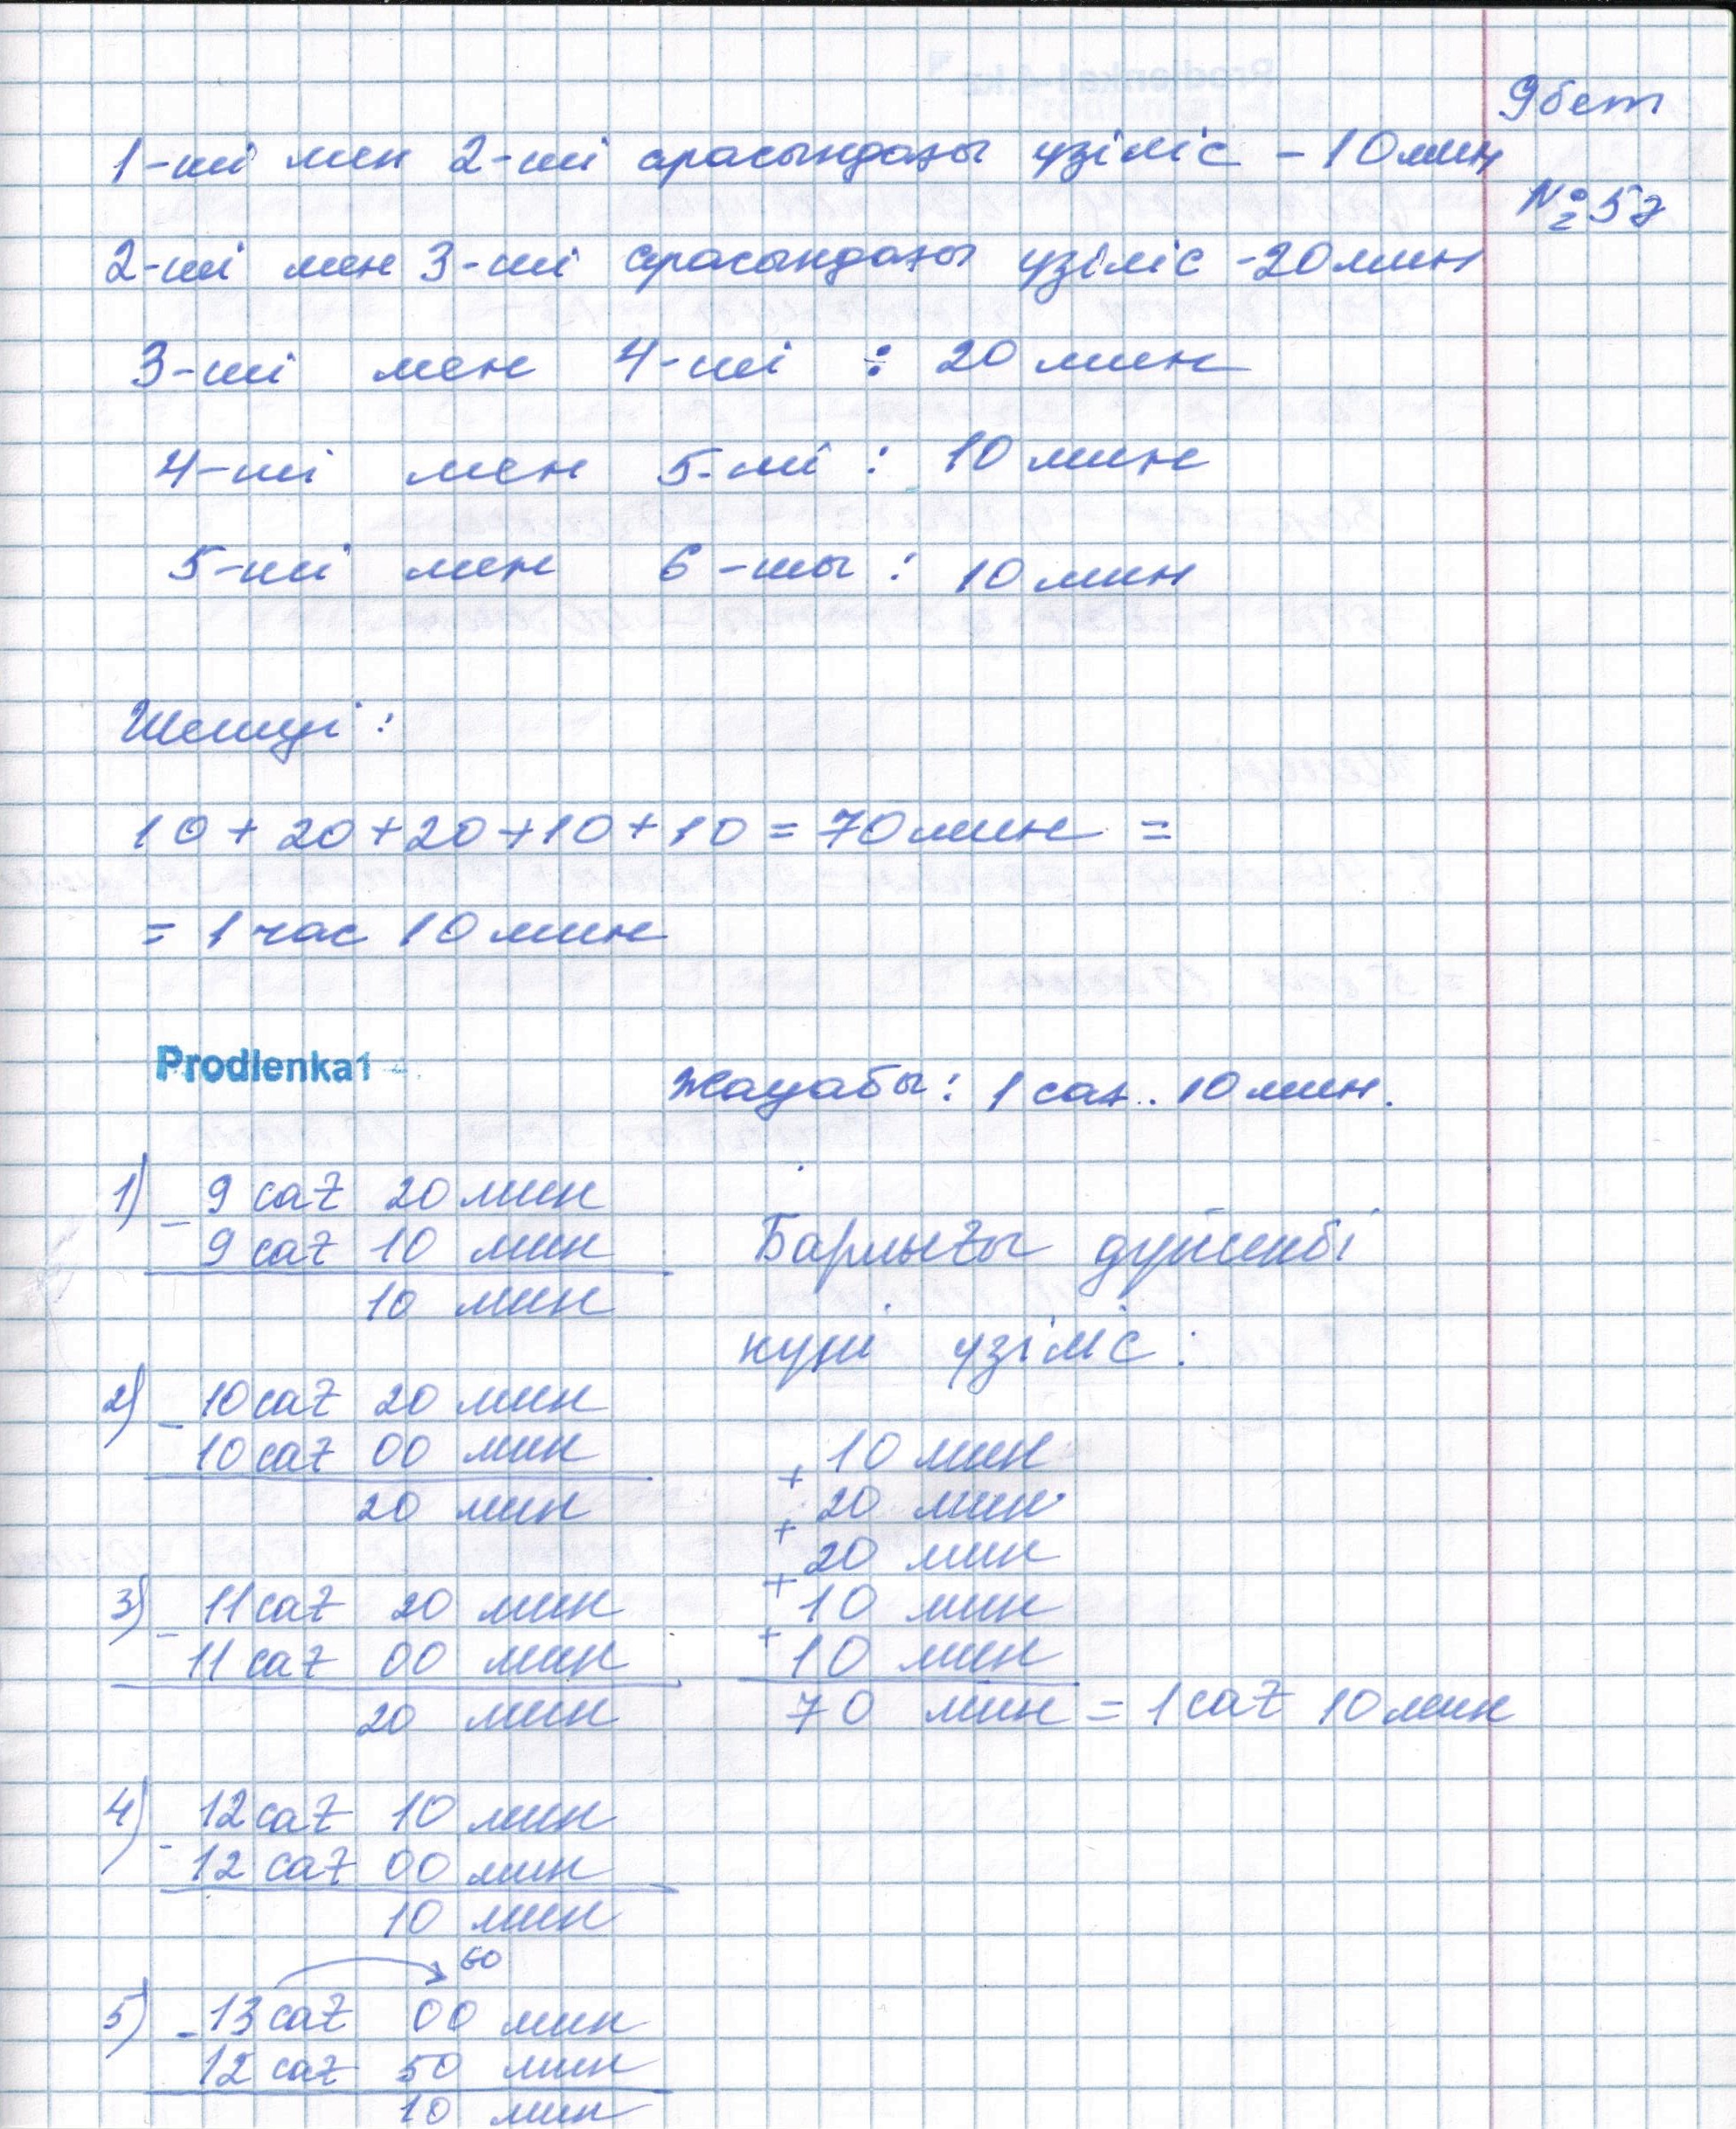 9 бет
1-ші мен 2-ші арасындағы үзіліс - 10 мин
№ 5
2-ші мен 3-ші арасындағы үзіліс - 20 мин
3-ші мен 4-ші : 20 мин
4-ші мен 5-ші : 10 мин
5-ші мен 6-шы : 10 мин
Шешуі :
10 + 20 + 20 + 10 + 10 = 70 мин =
= 1 час 10 мин
Prodlenka1
Жауабы : 1 сағ. 10 мин.
1) - 9 сағ 20 мин
9 сағ 10 мин
10 мин
2) - 10 сағ 20 мин
10 сағ 00 мин
20 мин
3) - 11 сағ 20 мин
11 сағ 00 мин
20 мин
4) - 12 сағ 10 мин
12 сағ 00 мин
10 мин
60
5) - 13 сағ 00 мин
12 сағ 50 мин
10 мин
Барлығы дүйсенбі
күні үзіліс :
10 мин
+ 20 мин
+ 20 мин
+ 10 мин
+ 10 мин
70 мин = 1 сағ 10 мин